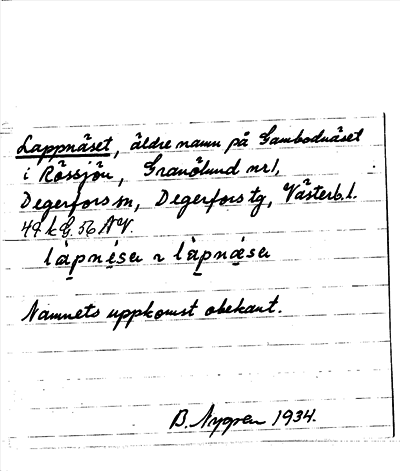 Lappnäset, äldre namn på Gambodnäset
i Rössjön, Granölund nr 1,
Degerfors sn, Degerfors tg, Västerb. l.
làpnésa ~ làpnæsa
Namnets uppkomst obekant.
B. Nygren 1934.